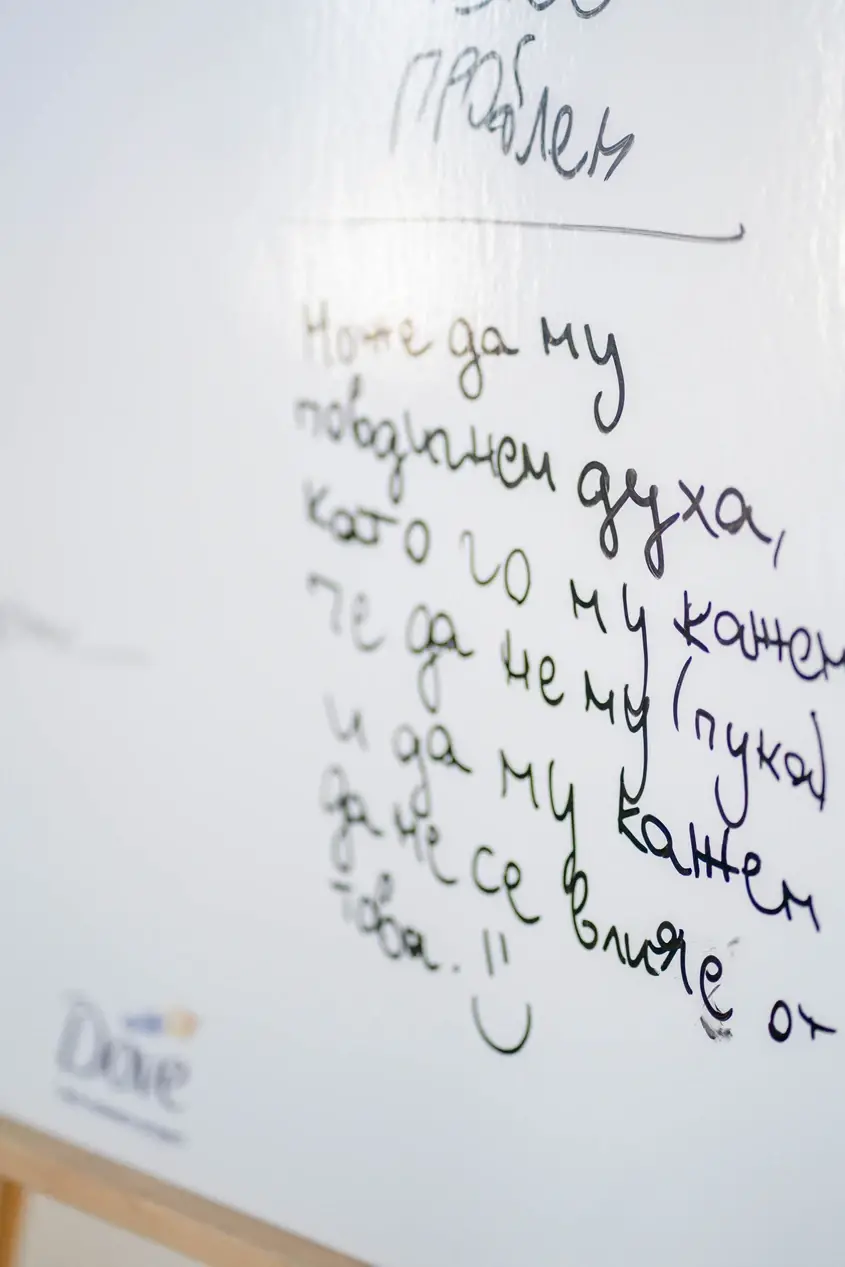 проблем
Може да му
повдигнем духа,
като го му кажем
че да не му (пука)
и да му кажем
да не се влияе от
това.
Dove